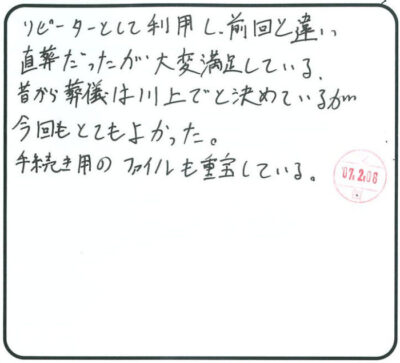 リピーターとして利用し、前回と違い
直葬だったが大変満足している。
昔から葬儀は川上でと決めているが
今回もとてもよかった。
手続き用のファイルも重宝している。
07.2.06